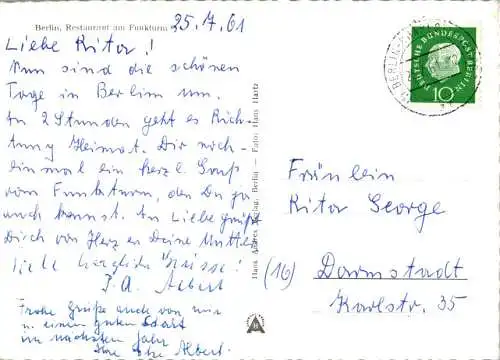 Berlin, Restaurant am Funkturm
25.7.61
Liebe Rita!
Nun sind die schönen
Tage in Berlin um.
In 2 Stunden geht es Rich-
tung Heimat. Dir noch-
einmal ein herzl. Gruß
vom Funkturm, den Du ja
auch kennst. In Liebe grüßt
Dich von Herzen Deine Mutter
Viele herzliche Grüsse!
P.A. Albert
Frohe Grüße auch von mir
u. einen guten Start
im nächsten Jahr
Ihre Albert.
Hans Andres Verlag, Berlin — Foto: Hans Hartz
DEUTSCHE BUNDESPOST BERLIN
10
BERLIN
Fräulein
Rita George
(16) Darmstadt
Karlstr. 35